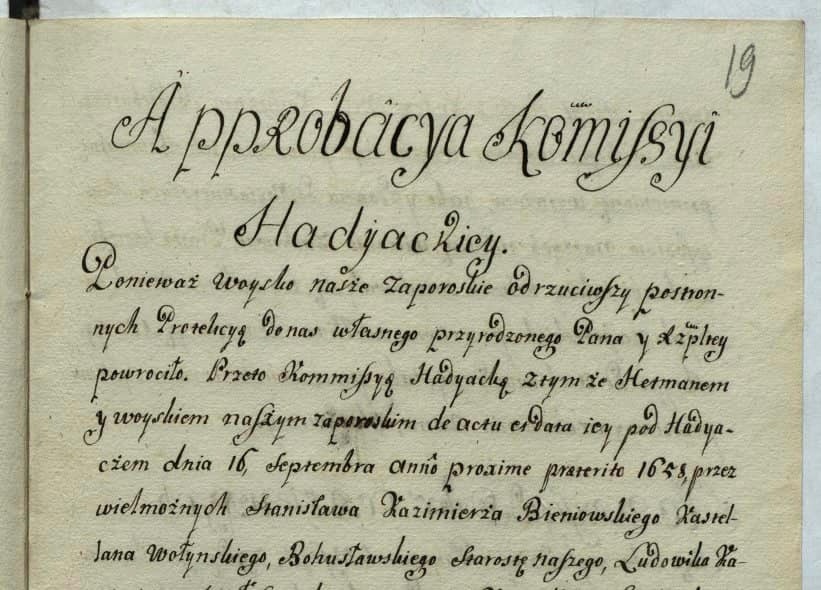 19
Approbacya Kommissyi
Hadyackiey.
Ponieważ woysko nasże zaporoskie odrzuciwszy postron-
nych Protekcyę do nas własnego przyrodzonego Pana y Rżpltey
powrociło. Przeto Kommissyę Hadyacką z tym że Hetmanem
y woyskiem naszym zaporoskim de actu et data iey pod Hadya-
czem dnia 16, Septembra anno proxime præterito 1658, przez
wielmożnych Stanisława Kazimierża Bieniowskiego Kastel-
lana Wołynskiego, Bohusławskiego Starostę naszego, Ludowika Ka-